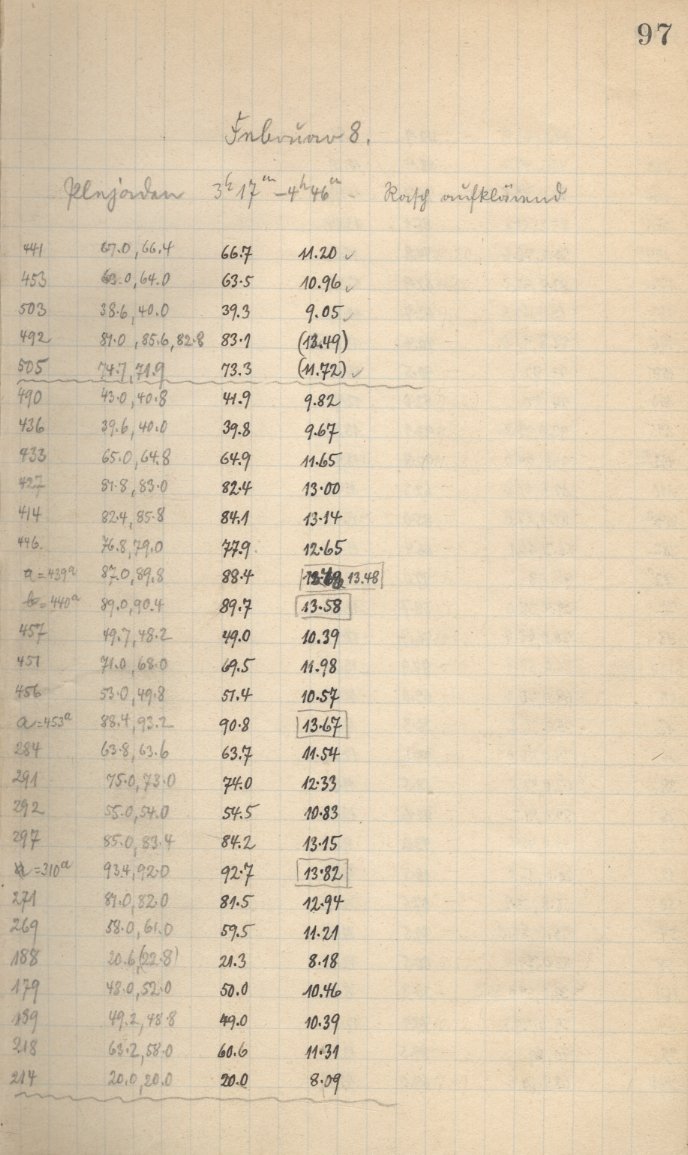 97
Februar 8.
Plejaden 3h 17m – 4h 46m Rasch aufklärend
441 67.0, 66.4 66.7 11.20 ✓
453 63.0, 64.0 63.5 10.96 ✓
503 38.6, 40.0 39.3 9.05 ✓
492 81.0, 85.6, 82.8 83.1 (13.49)
505 74.7, 71.9 73.3 (11.72) ✓
490 43.0, 40.8 41.9 9.82
436 39.6, 40.0 39.8 9.67
433 65.0, 64.8 64.9 11.65
427 81.8, 83.0 82.4 13.00
414 82.4, 85.8 84.1 13.14
446. 76.8, 79.0 77.9 12.65
a = 439a 87.0, 89.8 88.4 13.48
b = 440a 89.0, 90.4 89.7 13.58
457 49.7, 48.2 49.0 10.39
451 71.0, 68.0 69.5 11.98
456 53.0, 49.8 51.4 10.57
a = 453a 88.4, 93.2 90.8 13.67
284 63.8, 63.6 63.7 11.54
291 75.0, 73.0 74.0 12.33
292 55.0, 54.0 54.5 10.83
297 85.0, 83.4 84.2 13.15
a = 310a 93.4, 92.0 92.7 13.82
271 81.0, 82.0 81.5 12.94
269 58.0, 61.0 59.5 11.21
188 20.6 (22.8) 21.3 8.18
179 48.0, 52.0 50.0 10.46
189 49.2, 48.8 49.0 10.39
218 63.2, 58.0 60.6 11.31
214 20.0, 20.0 20.0 8.09